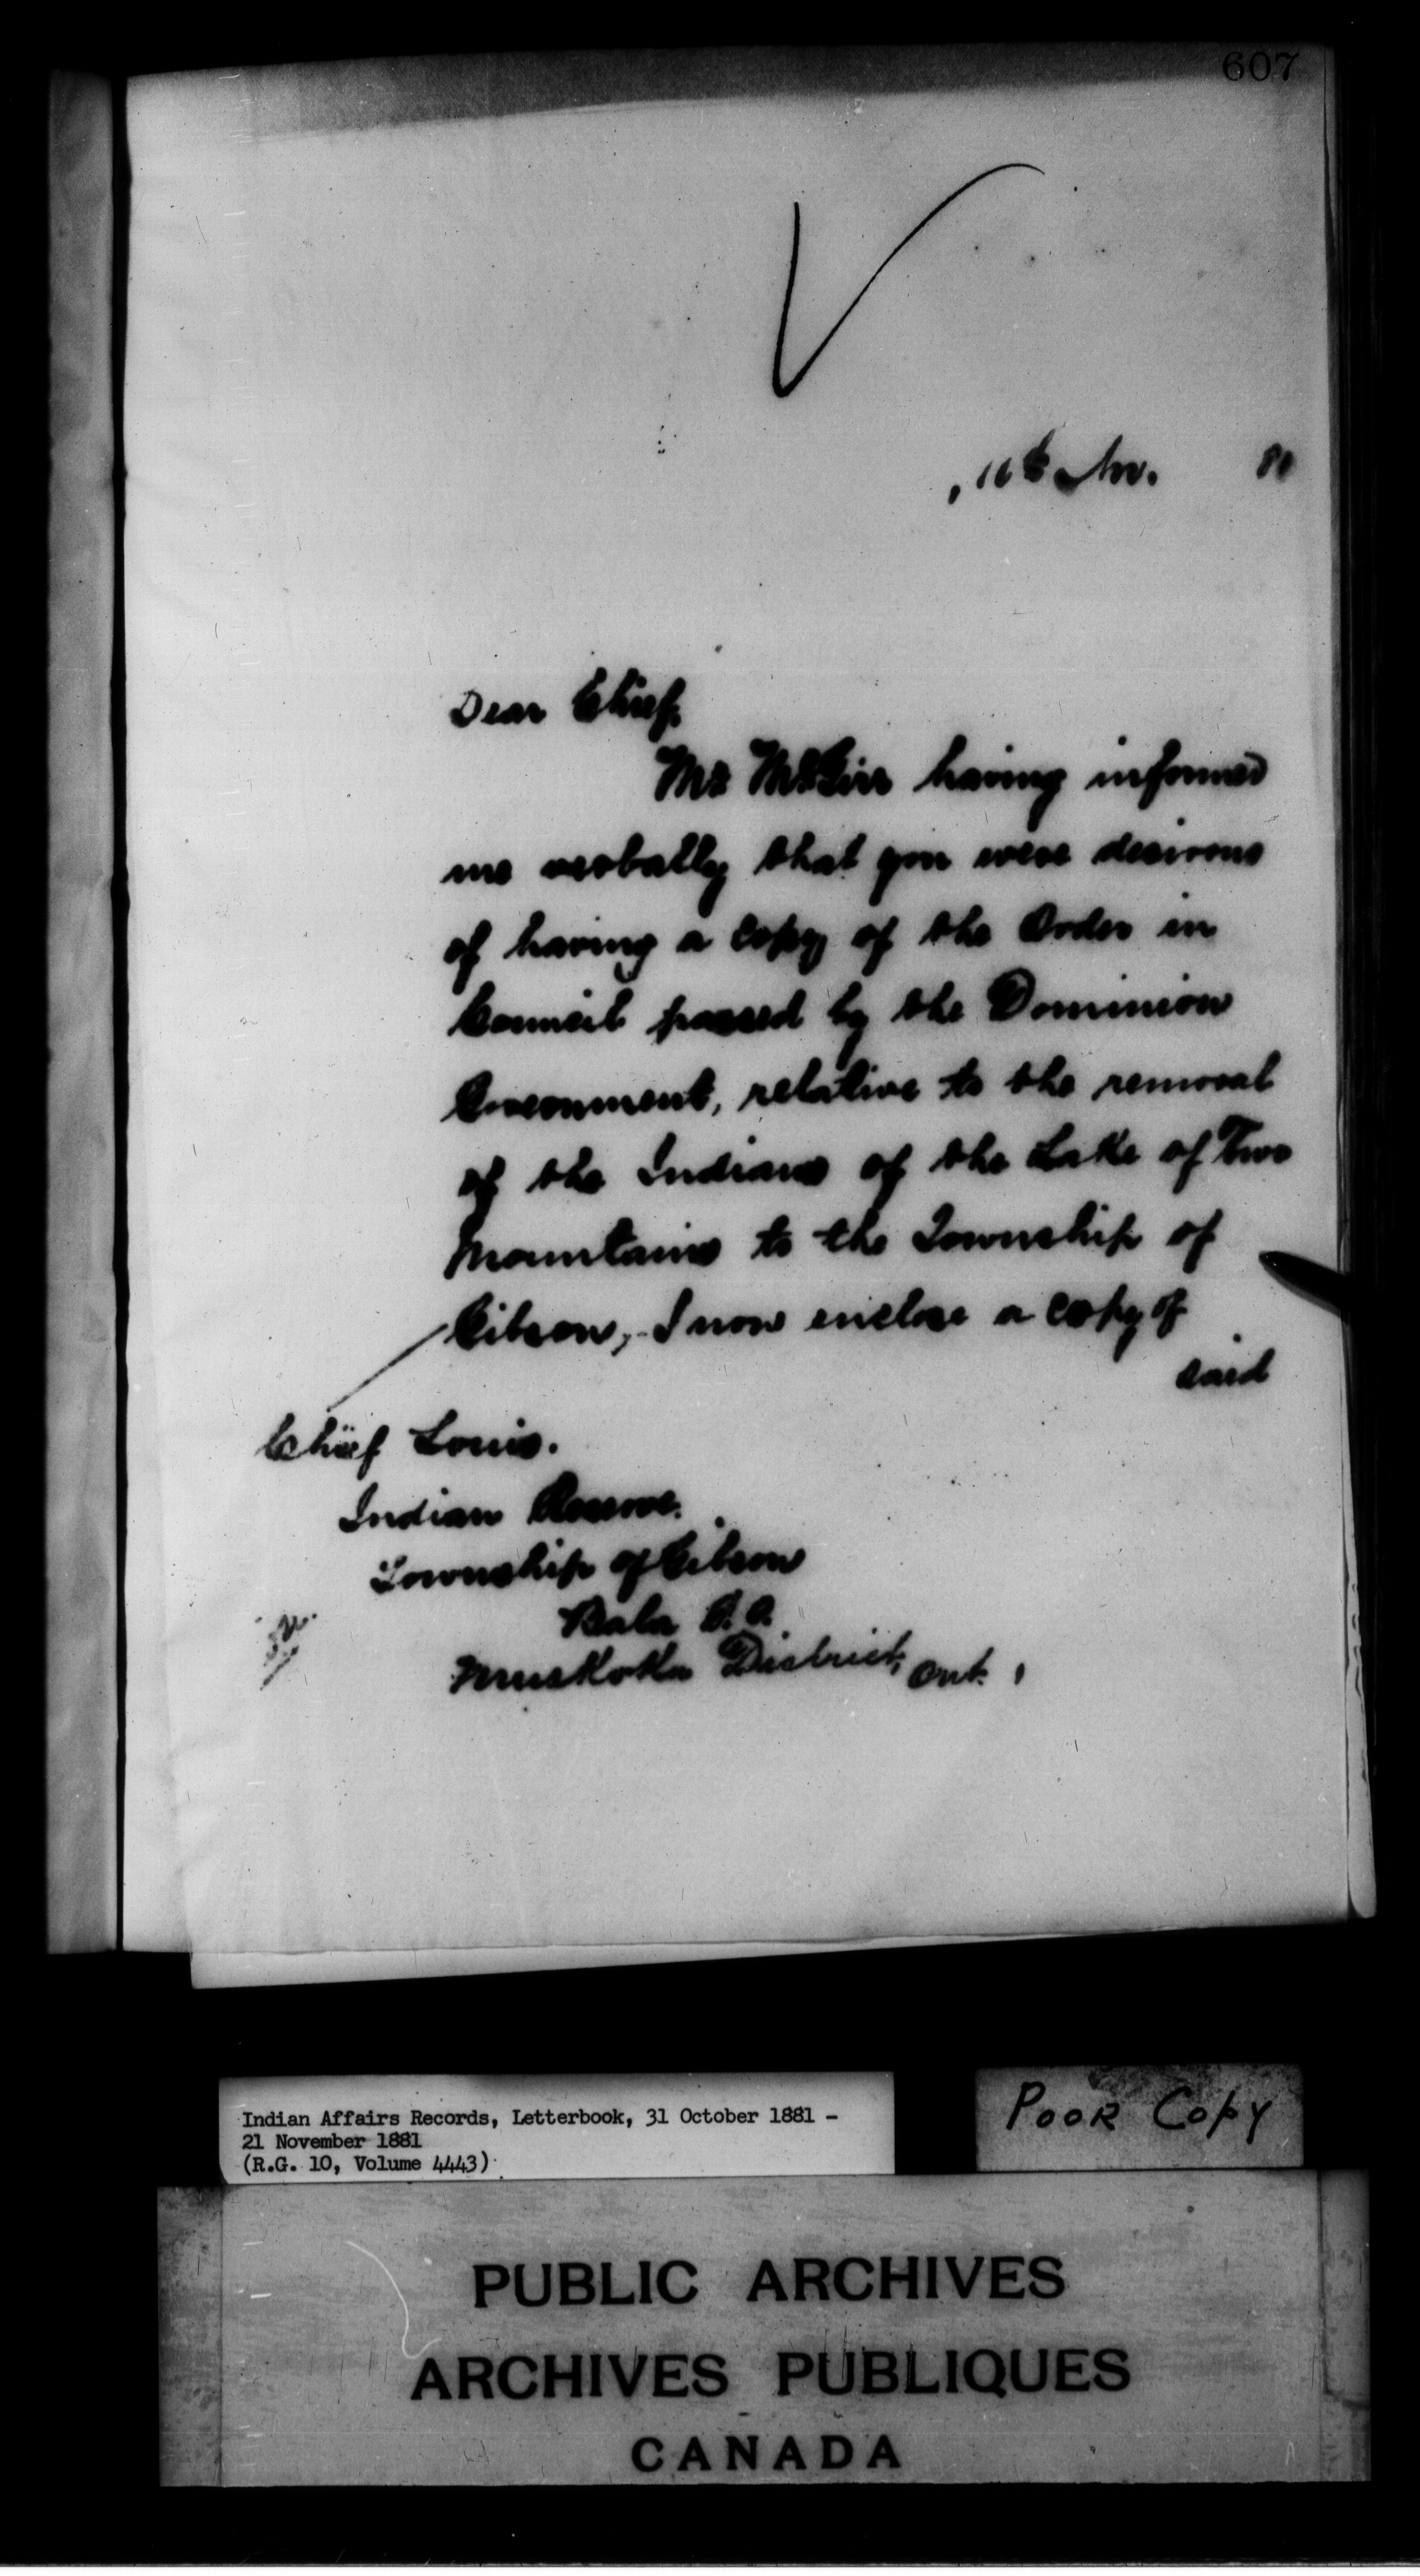 607
Nov. 81
Dear Chief,
Mr McGirr having informed
me verbally that you were desirous
of having a copy of the Order in
Council passed by the Dominion
Government, relative to the removal
of the Indians of the Lake of Two
Mountains to the Township of
Gibson, I now enclose a copy of
said
Chief Louis.
Indian Reserve.
Township of Gibson
Bala P.O.
Muskoka District, Ont.
Indian Affairs Records, Letterbook, 31 October 1881 -
21 November 1881
(R.G. 10, Volume 4443)
POOR COPY
PUBLIC ARCHIVES
ARCHIVES PUBLIQUES
CANADA